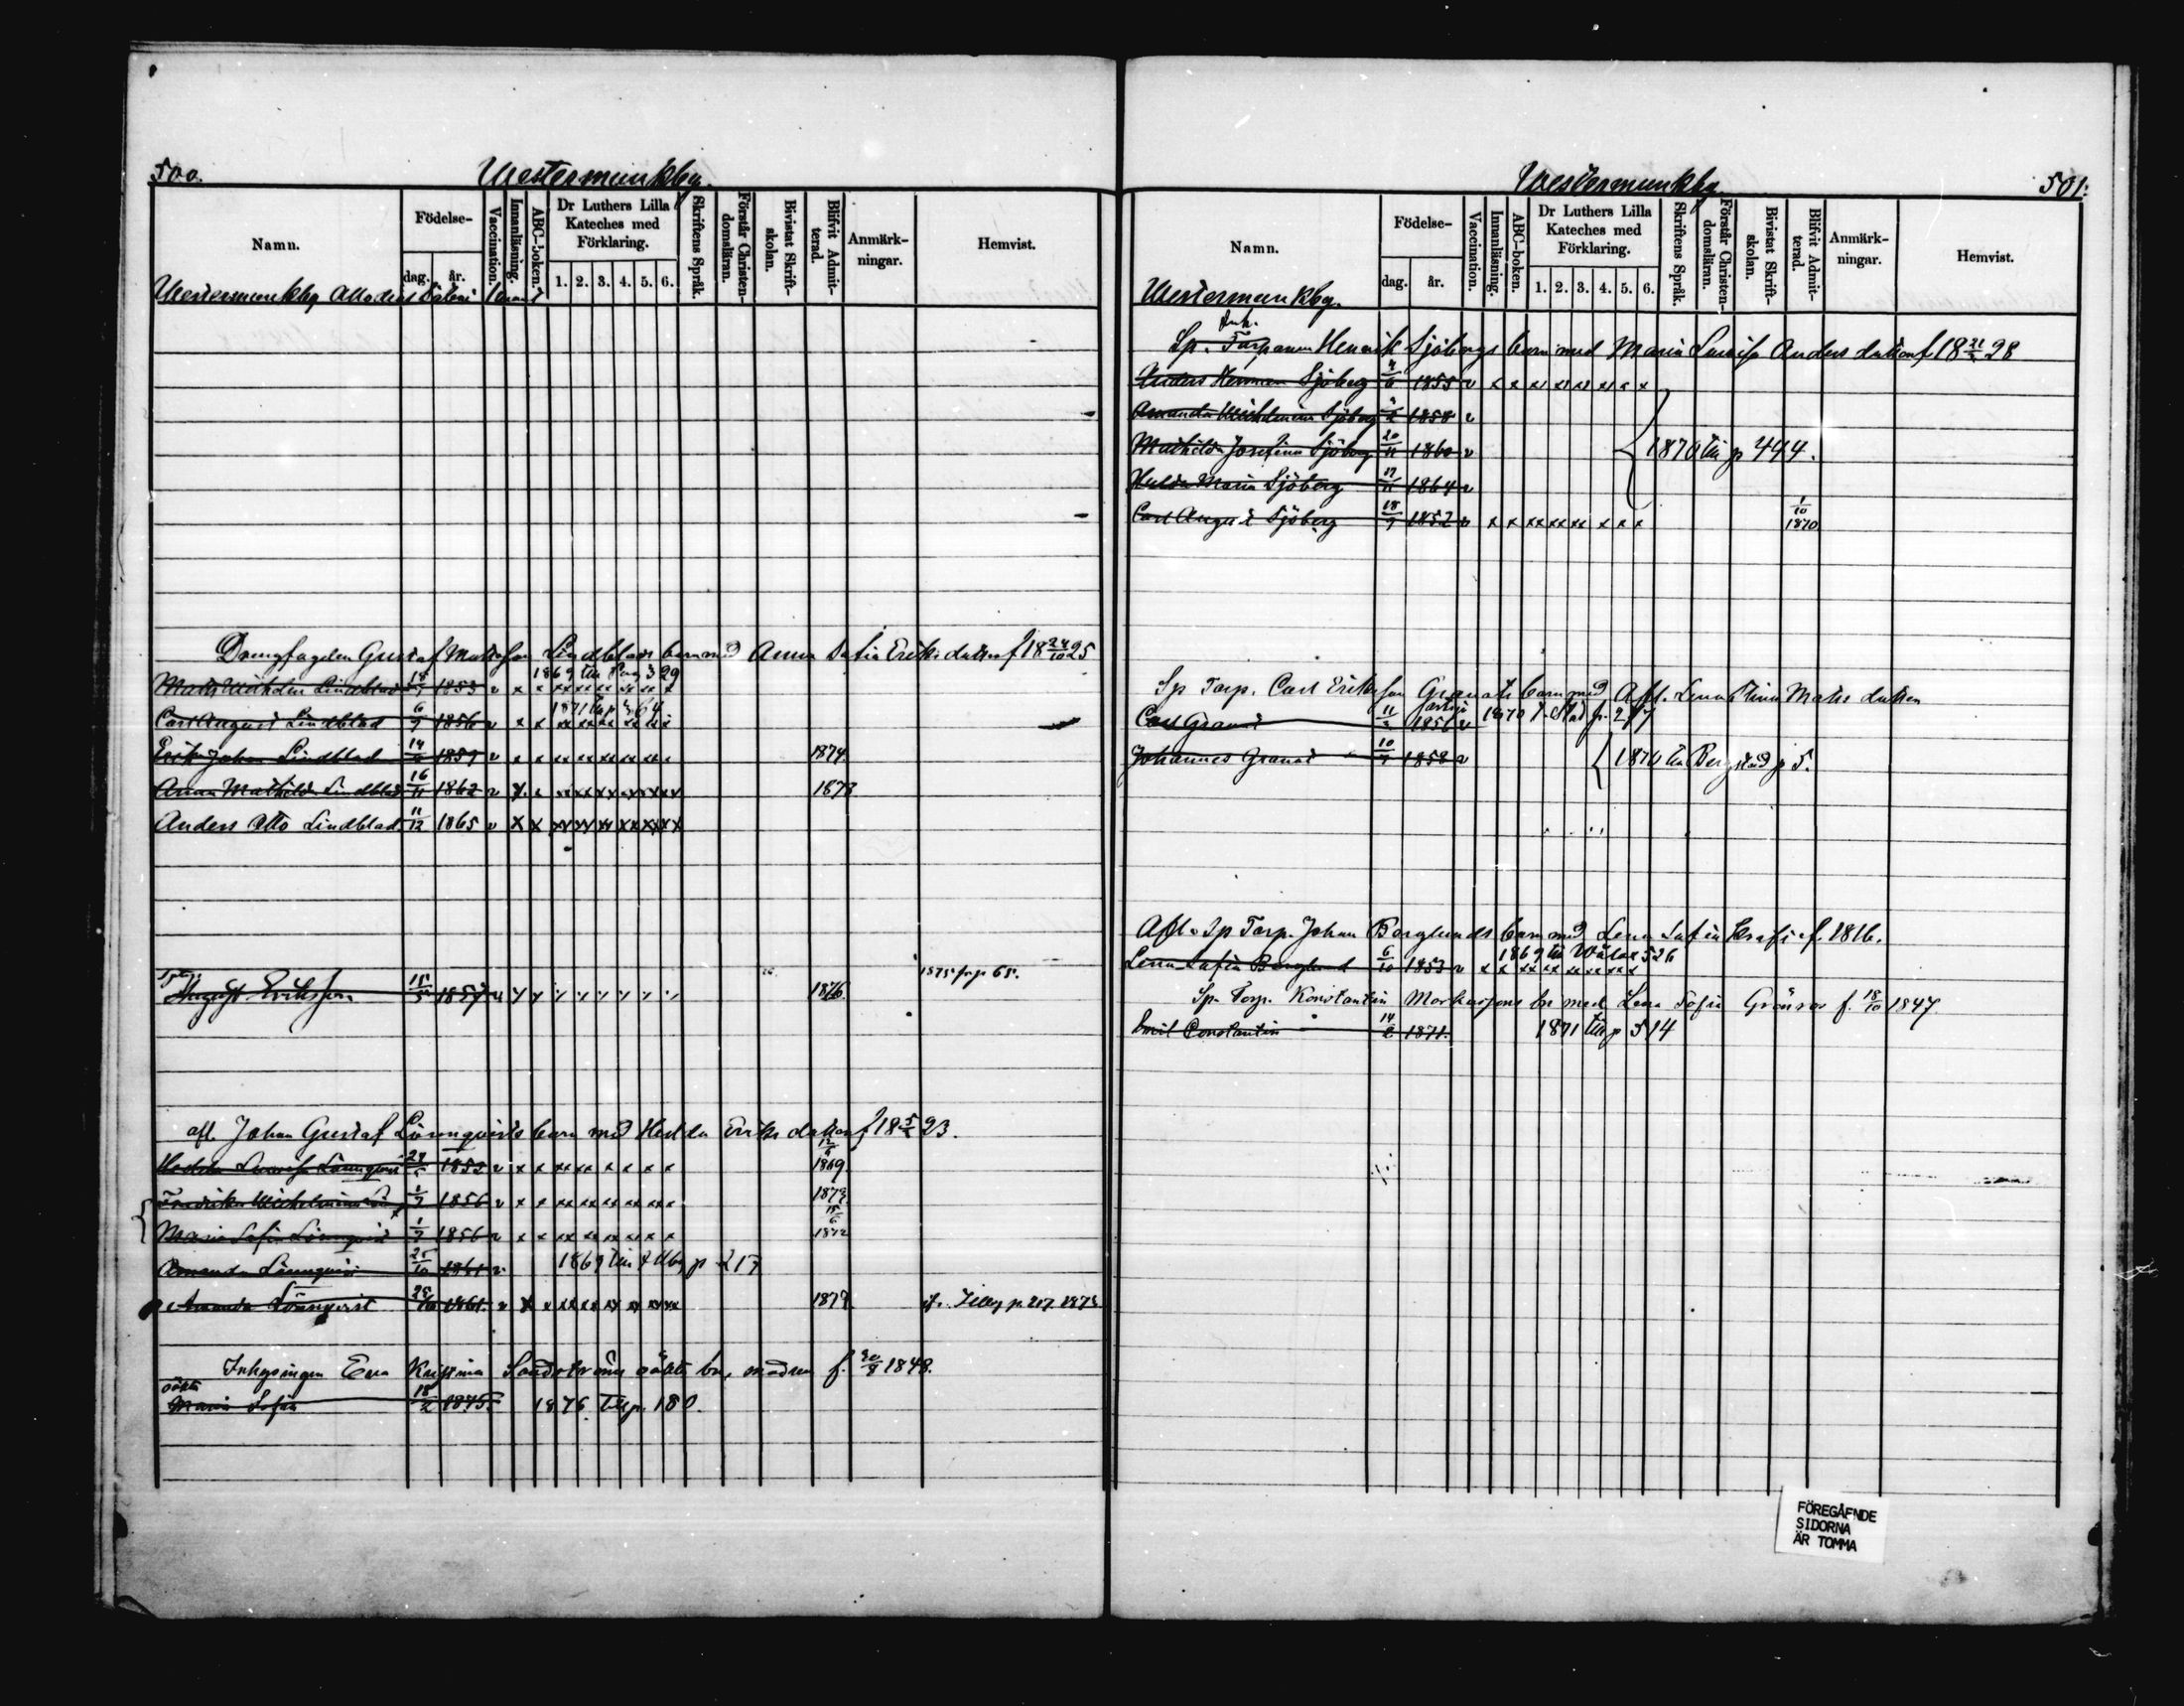 500.
Westermunkby.
Namn.
Födelse-
dag. år.
Vaccination.
Innanläsning.
ABC-boken.
Dr Luthers Lilla Kateches med Förklaring.
1. 2. 3. 4. 5. 6.
Skriftens Språk.
Förstår Christen-domsläran.
Bivistat Skrift-skolan.
Blifvit Admit-terad.
Anmärk-ningar.
Hemvist.
Westermunkby
Gustaf Lindblads barn med Anna Sofia Eriksdotter f 18 24/10 25
1869 till Pag 329
Mats Wilhelm Lindblad 18 1853 v x x xx xx xx xx xx x
1871 till p 364
Carl August Lindblad 6/9 1856 v x x xx xx xx xx xx x
Erik Johan Lindblad 14 1859 v x x xx xx xx xx xx x 1874
Anna Mathilda Lindblad 16/11 1862 v x x xx xx xx xx xx xx 1878
Anders Otto Lindblad 11/12 1865 v x x xx xx xx xx xx xx
August Eriksson 15 1857 v 1876 1875 fr p 65.
afl. Johan Gustaf Lönnqvists barn med Hedda Eriksdotter f 18 23.
Hedda Lovisa Lönnqvist 1852 v x x xx xx x x x x 12 1869
Fredrika Wilhelmina 1/9 1856 v x x xx xx xx xx x x 1873
Maria Sofia Lönnqvist 1/9 1856 v x x xx xx xx xx x x 15/6 1872
Amanda Lönnqvist 25/10 1861 v 1869 till p 217
Amanda Lönnqvist 25/10 1861 v x x xx xx xx xx xx xx 1879 p 217 1873
Inhysingen Eva Kristina Sandströms oäkta bn, modren f. 30/8 1848.
oäkta
Maria Sofia 18/2 1875 1876 till p. 180.
Westermunkby
501.
Namn.
Födelse-
dag. år.
Vaccination.
Innanläsning.
ABC-boken.
Dr Luthers Lilla Kateches med Förklaring.
1. 2. 3. 4. 5. 6.
Skriftens Språk.
Förstår Christen-domsläran.
Bivistat Skrift-skolan.
Blifvit Admit-terad.
Anmärk-ningar.
Hemvist.
Westermunkby.
Sp. Henrik Sjöbergs barn med Maria Lovisa Andersdotter f 18 28
Anders Herman Sjöberg 4/6 1855 v x x xx xx xx xx x x
Amanda Wilhelmina Sjöberg 1858 v
Mathilda Josefina Sjöberg 20/11 1860 v 1870 till p 444.
Hulda Maria Sjöberg 17/11 1864 v
Carl August Sjöberg 18/9 1852 v x x xx xx xx x x x 1/10 1870
Sp Torp. Carl Eriksson Granats barn med Afl. Lena Stina Mats dotter
Carl Granat 11 1856 v 1870 t. Stad p. 217
Johannes Granat 10 1858 v 1870 till Bergstad p 5.
Afl. Sp Torp. Johan Berglunds barn med Lena Sofia f. 1816.
Lena Sofia Berglund 6/10 1853 v x x xx xx xx xx x x 1869 till 526
Sp. Torp. Konstantin Markussons bn med Lena Sofia Grönros f. 18/10 1847.
Emil Constantin 14 1871. 1871 till p 514
FÖREGÅENDE
SIDORNA
ÄR TOMMA